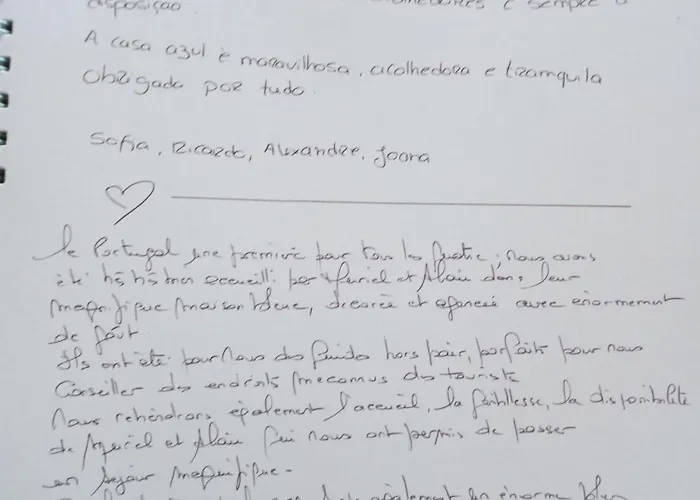 disposição
A casa azul é maravilhosa, acolhedora e tranquila
Obrigada por tudo.
Sofia, Ricardo, Alexandre, Joana
le Portugal une première pour tous les quatre, nous avons
été très très bien accueilli par Muriel et Alain dans leur
magnifique maison bleue, décorée et agencée avec énormément
de goût
Ils ont été pour nous des guides hors pair, parfaits pour nous
conseiller des endroits méconnus des touriste
Nous retiendrons également l'accueil, la gentillesse, la disponibilité
de Muriel et Alain qui nous ont permis de passer
un séjour magnifique.
également un énorme